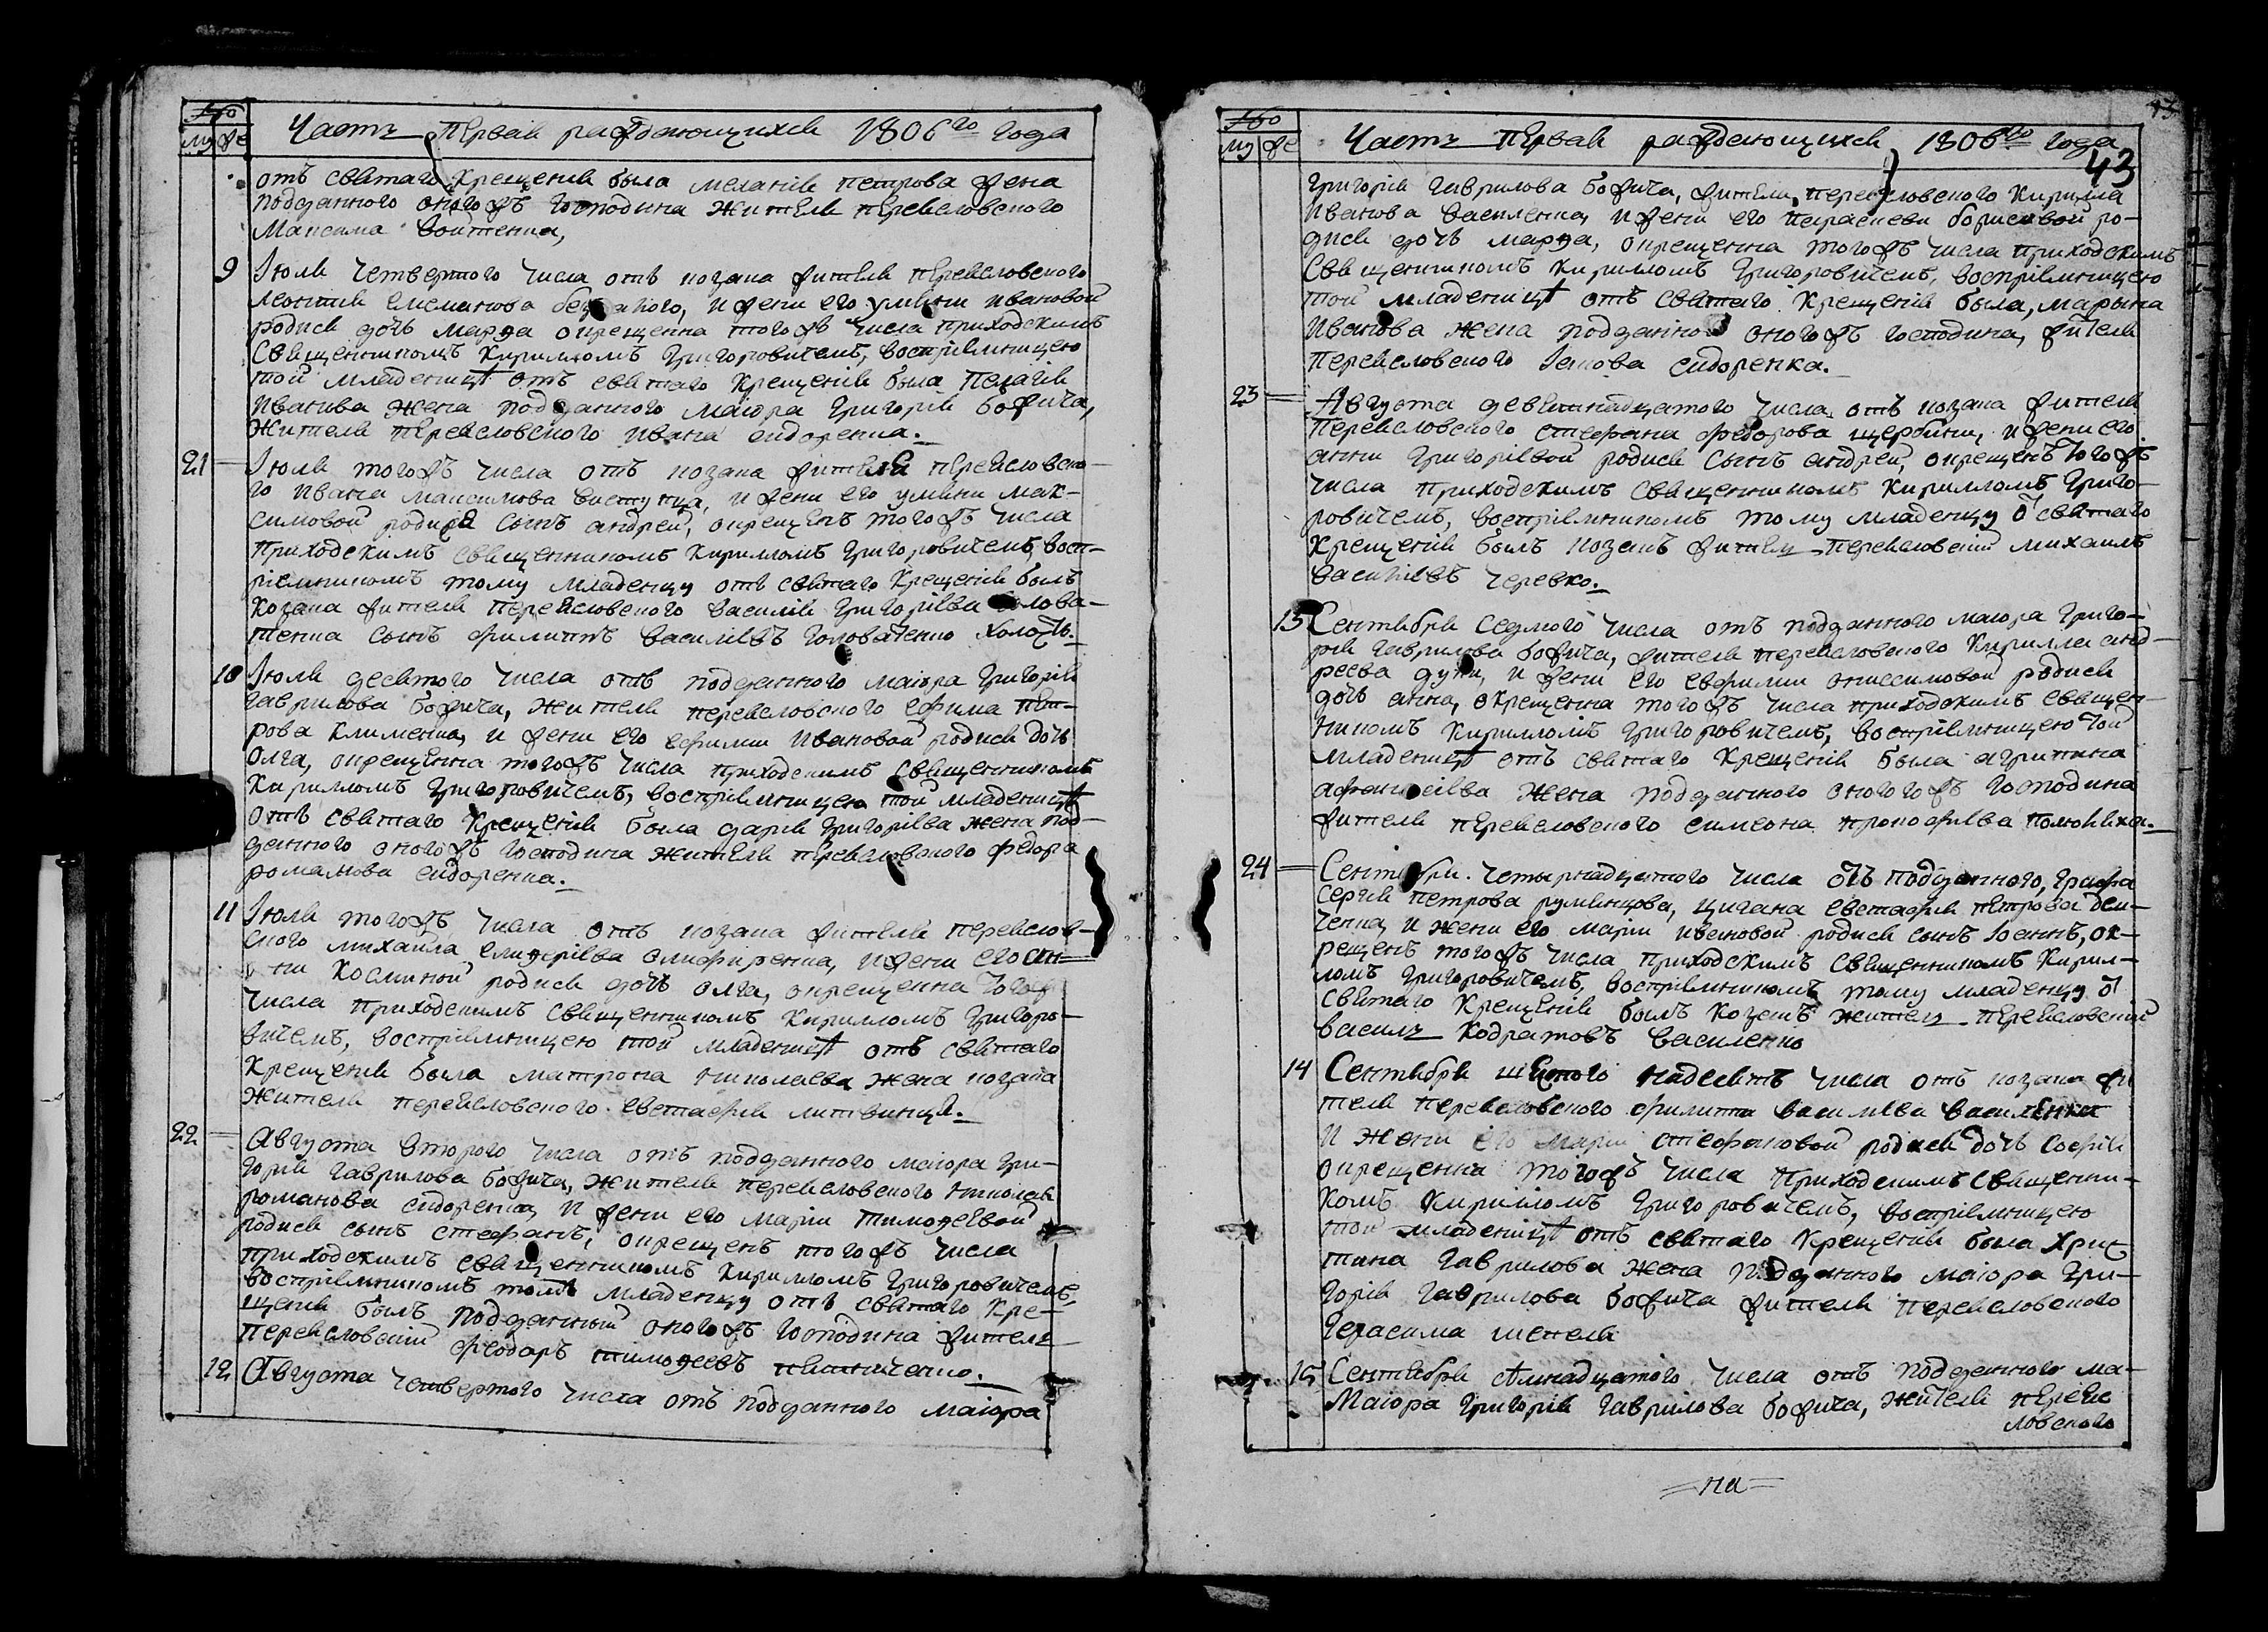 Часть Первая раждающихся 1806го Года
му же
отъ святаго Крещенія была меланія петрова жена
подданного оногожъ Господина Жителя переясловского
Максима Войтенка,
9 Іюля четвертого числа отъ козака жителя переясловского
леонтія и жени его улияни ивановой
родися дочъ марѳа окрещенна тогожъ числа приходскимъ
Священникомъ Кирилломъ Григоровичемъ, воспріемницею
той младеницѣ отъ святаго Крещенія была Пелагія
Иванова жена подданного маіора Григорія божича,
Жителя переясловского ивана сидоренка.
21 Іюля тогожъ числа отъ козака жителя переясловско-
го ивана максимова и жени его улияни мак-
симовой родися сынъ андрей, окрещенъ тогожъ числа
приходскимъ священникомъ Кирилломъ Григоровичемъ, восп-
ріемникомъ тому младенцу отъ святаго Крещенія былъ
Козака жителя переясловского василія Григоріева Голова-
тенка сынъ филиппъ василіевъ Головатенко холостъ.
10 Іюля десятого числа отъ подданного маіора Григорія
Гаврилова божича, жителя переясловского ефима пет-
рова клименка, и жени его ефиміи Ивановой родися дочъ
Олга, окрещенна тогожъ числа приходскимъ священникомъ
Кирилломъ Григоровичемъ, воспріемницею той младеницѣ
отъ святаго Крещенія была дарія Григоріева жена под-
данного оногожъ Господина жителя переясловского федора
романова сидоренка.
11 Іюля тогожъ числа отъ козака жителя переяслов-
ского михаила елиференка, и жени его
Космитой родися дочъ олга, окрещенна тогожъ
числа приходскимъ священникомъ Кирилломъ Григоро-
вичемъ, воспріемницею той младеницѣ отъ святаго
Крещенія была матрона николаева жена козака
Жителя переясловского евстафія литвинца.
22 Августа второго числа отъ подданного маіора Гри-
горія Гаврилова божича, жителя переясловского николая
романова сидоренка, и жени его маріи тимоѳеевой
родися сынъ стефанъ, окрещенъ тогожъ числа
приходскимъ священникомъ Кирилломъ Григоровичемъ,
воспріемникомъ тому младенцу отъ святаго Кре-
щенія былъ подданный оногожъ Господина житель
переясловский феодоръ тимоѳеевъ
12 Августа четвертого числа отъ подданного маіора
Часть первая раждающихся 1806го Года
му же
43
Григорія Гаврилова божича, жителя, переясловского Кирилла
Иванова василенка, и жени его параскеви борисовой ро-
дися дочъ марѳа, окрещенна тогожъ числа приходскимъ
Священникомъ Кирилломъ Григоровичемъ, воспріемницею
той младеницѣ отъ святаго Крещенія была, марьяна
Иванова жена подданного оногожъ Господина, жителя
переясловского Іакова сидоренка.
23 Августа девятнадцатого числа отъ козака жителя
переясловского стефана федорова щербини, и жени его
анни Григоріевой родися сынъ андрей, окрещенъ тогожъ
числа приходскимъ священникомъ Кирилломъ Григо-
ровичемъ, воспріемникомъ тому младенцу ѿ святаго
Крещенія былъ козакъ житель переясловский михаилъ
василіевъ черевко.
13 Сентября седмого числа отъ подданного маіора Григо-
рія Гаврилова божича, жителя переясловского Кирилла анд-
реева и жени его евфиміи онисимовой родися
дочъ анна, окрещенна тогожъ числа приходскимъ священ-
никомъ Кирилломъ Григоровичемъ, воспріемницею той
младеницѣ отъ святаго Крещенія была агрипина
жена подданного оногожъ Господина
жителя переясловского симеона прокофіева
24 Сентября четырнадцатого числа ѿ подданного, графа
Сергія петрова румянцова, цигана евстафія петрова
и жени его маріи ивановой родися сынъ Іоаннъ, ок-
рещенъ тогожъ числа приходскимъ священникомъ Кирил-
ломъ Григоровичемъ, воспріемникомъ тому младенцу ѿ
святаго Крещенія былъ козакъ житель переясловский
василъ Кодратовъ василенко
14 Сентября шестого надесять числа отъ козака жи
теля переясловского филиппа василіева василенка
и жени его маріи стефановой родися дочъ софія
окрещенна тогожъ числа приходскимъ священни-
комъ Кирилломъ Григоровичемъ, воспріемницею
той младеницѣ отъ святаго Крещенія была Хрис
тина Гаврилова жена подданного маіора Гри-
горія Гаврилова божича жителя переясловского
Герасима
15 Сентября сѣмнадцатого числа отъ подданного ма-
Маіора Григорія Гаврилова божича, жителя переяс
ловского
на